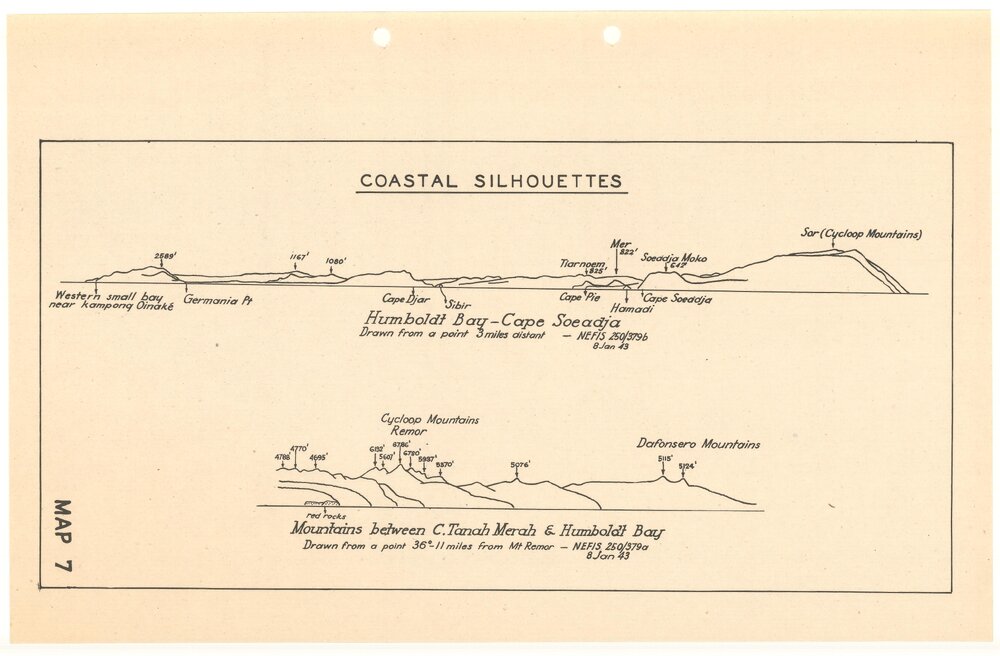 COASTAL SILHOUETTES
Sor (Cycloop Mountains)
Mer
822'
Soeadja Moko
642'
Tiarnoem
825'
2589'
1167'
1080'
Western small bay
near kampong Oinaké
Germania Pt
Cape Djar
Sibir
Cape Pie
Hamadi
Cape Soeadja
Humboldt Bay - Cape Soeadja
Drawn from a point 3 miles distant - NEFIS 250/379b
8 Jan 43
Cycloop Mountains
Remor
Dafonsero Mountains
4788'
4770'
4695'
6132'
5607'
6786'
6780'
5937'
5370'
5076'
5115'
5124'
red rocks
Mountains between C. Tanah Merah & Humboldt Bay
Drawn from a point 36°-11 miles from Mt Remor - NEFIS 250/379a
8 Jan 43
MAP 7